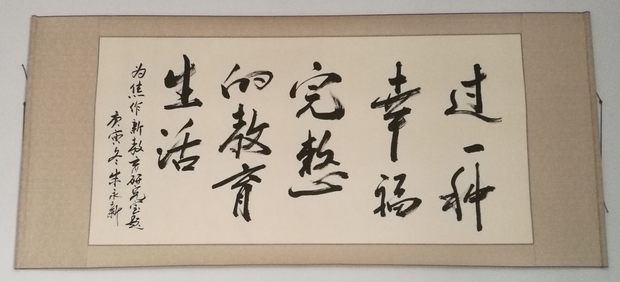 过一种
幸福
完整
的教育
生活
为焦作新教育研究室题
庚寅冬朱永新